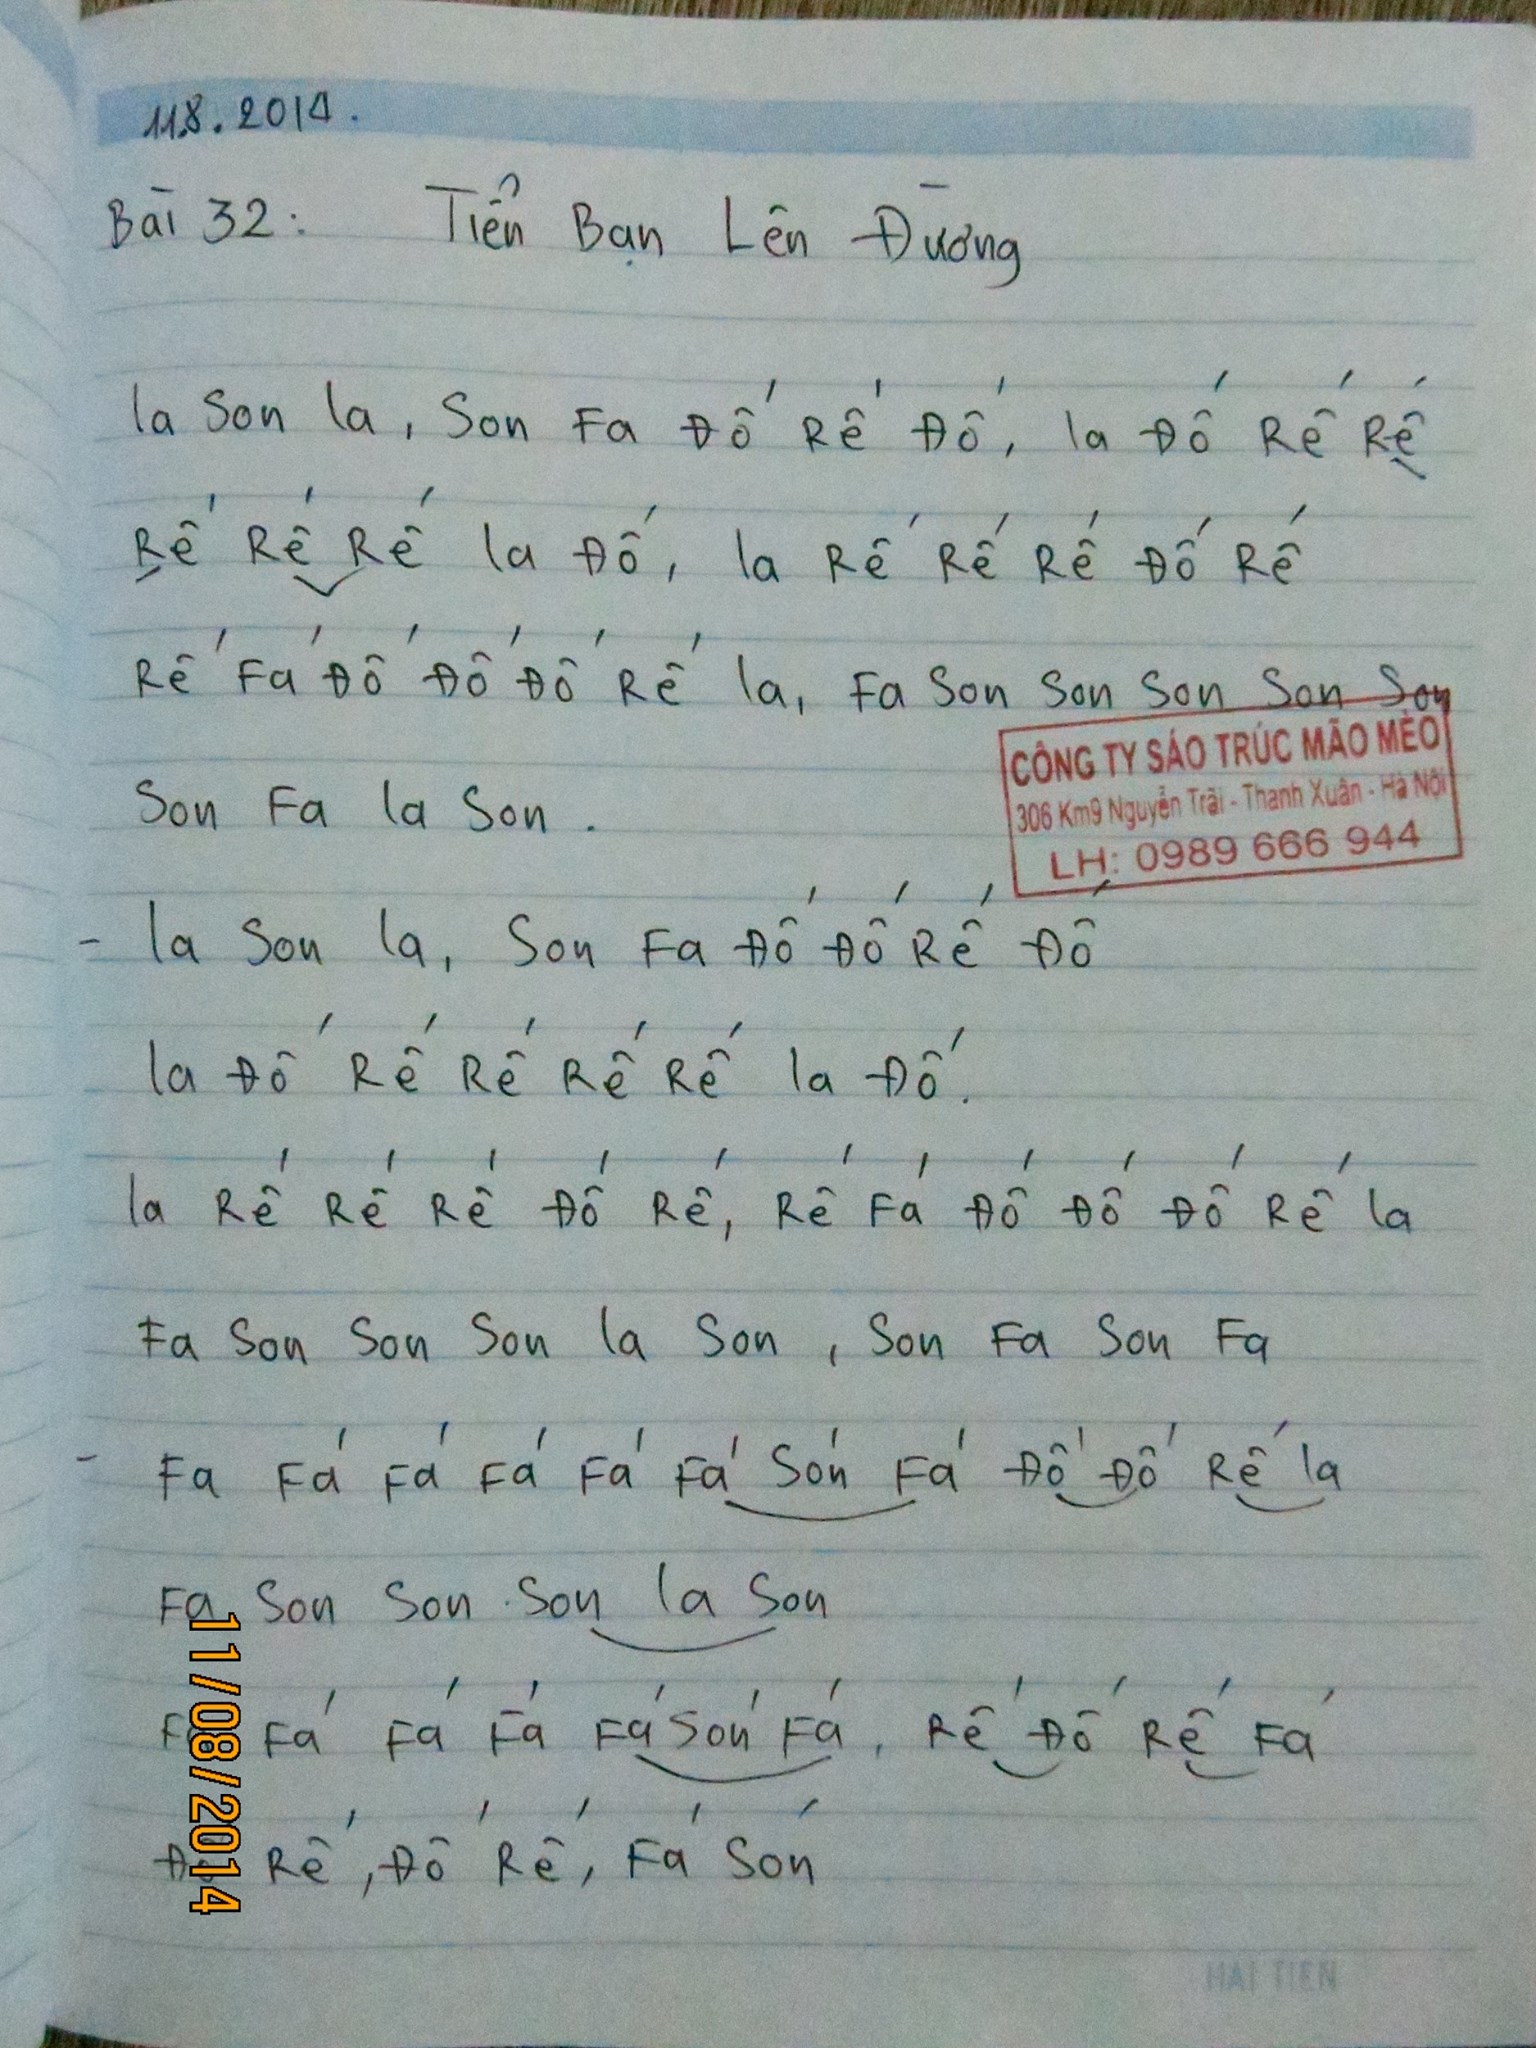 11.8.2014.
Bài 32: Tiễn Bạn Lên Đường
la Son la, Son Fa Đố Rế Đố, la Đố Rế Rế
Rế Rế Rế la Đố, la Rế Rế Rế Đố Rế
Rế Fá Đố Đố Đố Rế la, Fa Son Son Son Son Son
CÔNG TY SÁO TRÚC MÃO MÈO
306 Km9 Nguyễn Trãi - Thanh Xuân - Hà Nội
LH: 0989 666 944
Son Fa la Son.
- la Son la, Son Fa Đố Đố Rế Đố
la Đố Rế Rế Rế Rế la Đố.
la Rế Rế Rế Đố Rế, Rế Fá Đố Đố Đố Rế la
Fa Son Son Son la Son, Son Fa Son Fa
- Fa Fá Fá Fá Fá Fá Són Fá Đố Đố Rế la
Fa Son Son Son la Son
Fá Fá Fá Fá Són Fá, Rế Đố Rế Fá
Rế, Đố Rế, Fá Són
11/08/2014
HẢI TIẾN